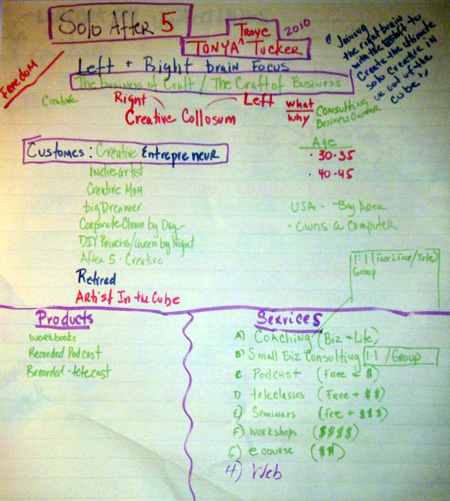 Solo After 5
Traye
TONYA ^ Tucker
2010
"Joining
the right brain
with the left to
Create the Ultimate
Solo Creative in
or out of the
Cube"
Freedom
Left + Right brain Focus
The business of Craft / The Craft of Business
Right
Left
Creative Collosum
what
why
Consulting
Business Owner
Age
• 30-35
• 40-45
Customes: Creative Entrepreneur
Indie artist
Creative Mom
big Dreamer
Corporate Clown by Day -
DIY Princess/Queen by Night
After 5 - Creative
Retired
Artist In the Cube
USA - Bay Area
- Owns a Computer
1:1 (free Line/Tele)
Group
Products
workbooks
Recorded Podcast
Recorded -telecast
Services
A) Coaching (Biz + Life)
B) Small Biz Consulting 1:1 / Group
C Podcast (Free + $)
D teleclasses (Free + $$)
E) Seminars (Free + $$$)
F) workshops ($$$$)
G) ecourse ($$)
4) Web